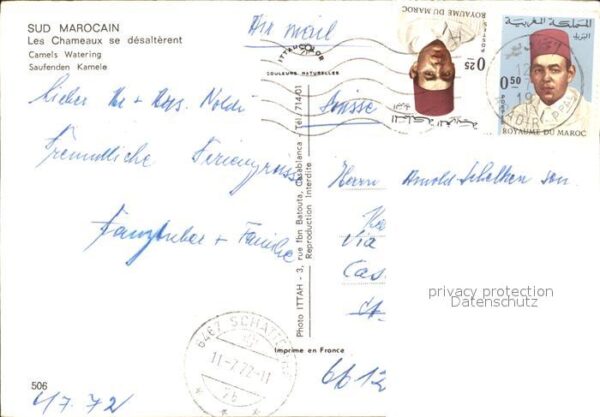 SUD MAROCAIN
Les Chameaux se désaltèrent
Camels Watering
Saufenden Kamele
Air mail
ITTAH COLOR
COULEURS NATURELLES
ROYAUME DU MAROC
POSTES
0.25
المملكة المغربية
البريد
المملكة المغربية
البريد
0.50
POSTES
ROYAUME DU MAROC
Lieber Hr + Noldi
Freundliche Feriengrüsse
+ Familie
Suisse
Herrn Arnold sen
Via
Cas
6612
Photo ITTAH - 3, rue Ibn Batouta, Casablanca - Tél. 714/01
Reproduction Interdite
Imprime en France
6467 SCHATTDORF
11-7.72-11
506
4.7.72
privacy protection
Datenschutz